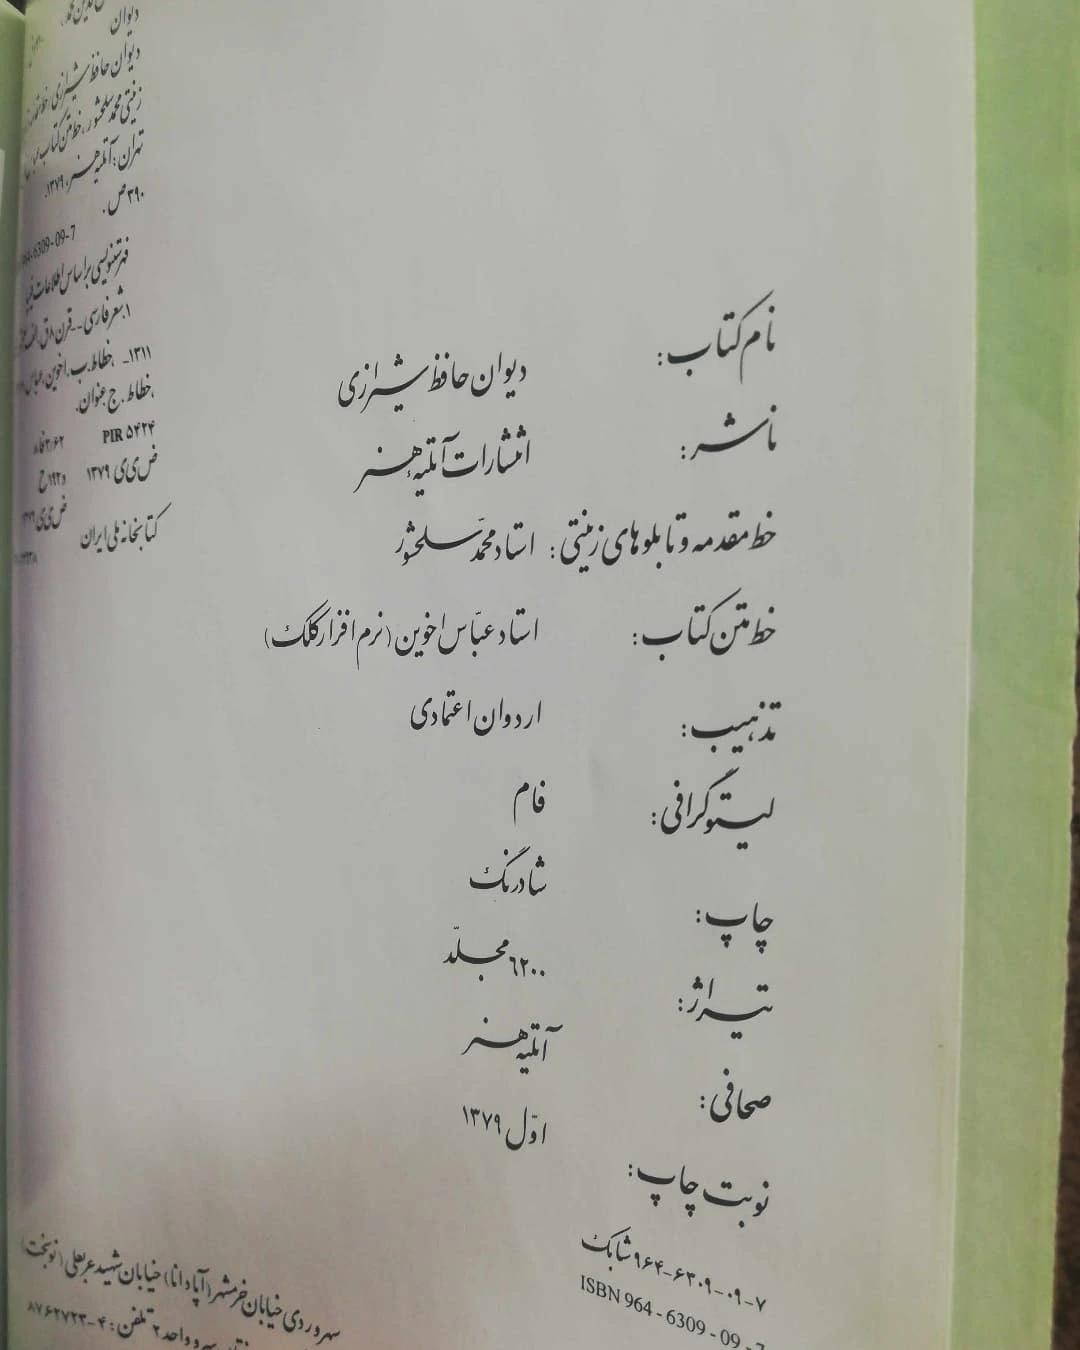 نام کتاب: دیوان حافظ شیرازی
ناشر: انتشارات آتلیه هنر
خط مقدمه و تابلوهای زینتی: استاد محمّد سلحشور
خط متن کتاب: استاد عبّاس اخوین (نرم افزار کلک)
تذهیب: اردوان اعتمادی
لیتوگرافی: فام
چاپ: شادرنگ
تیراژ: ۶۲۰۰ مجلّد
صحافی: آتلیه هنر
نوبت چاپ: اوّل ۱۳۷۹
شابک ۹۶۴-۶۳۰۹-۰۹-۷
ISBN 964 - 6309 - 09 - 7
سهروردی خیابان خرمشهر (آپادانا) خیابان شهید عربعلی (نوبخت)
واحد ۲ تلفن: ۴-۸۷۶۲۷۲۳
دیوان
دیوان حافظ شیرازی / خط مقدمه
زینتی محمد سلحشور، خط متن کتاب عباس
تهران: آتلیه هنر، ۱۳۷۹.
۳۹۰ ص.
964-6309-09-7
فهرستنویسی بر اساس اطلاعات فیپا
۱. شعر فارسی -- قرن ۸ ق. الف.
۱۳۱۱- ، خطاط. ب. اخوین، عباس
، خطاط. ج. عنوان.
PIR ۵۴۲۴
ض ی ی ۱۳۷۹
کتابخانه ملی ایران